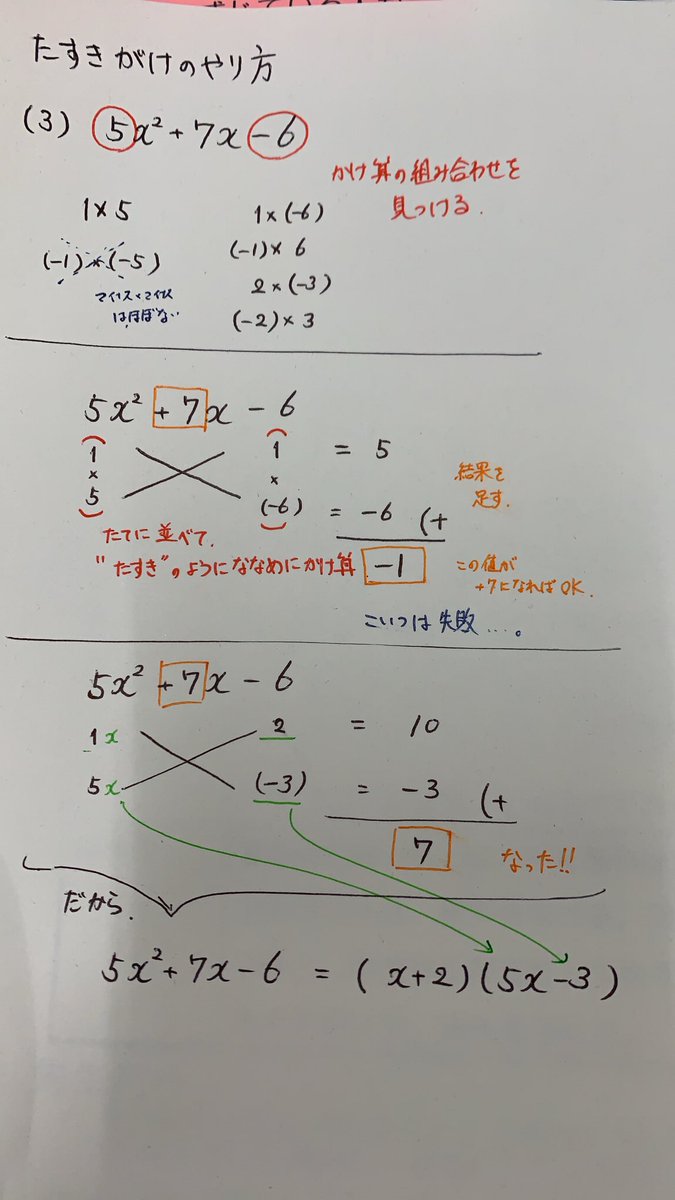 たすきがけのやり方
(3) 5x² + 7x - 6
かけ算の組み合わせを
見つける.
1 × 5
(-1) × (-5)
マイナス×マイナス
はほぼない
1 × (-6)
(-1) × 6
2 × (-3)
(-2) × 3
5x² + 7x - 6
1 1 = 5
× ×
5 (-6) = -6 (+
結果を
足す.
たてに並べて.
"たすき"のようにななめにかけ算
-1
この値が
+7になればOK.
こいつは失敗....。
5x² + 7x - 6
1x 2 = 10
5x (-3) = -3 (+
7
なった!!
だから.
5x² + 7x - 6 = (x+2)(5x-3)